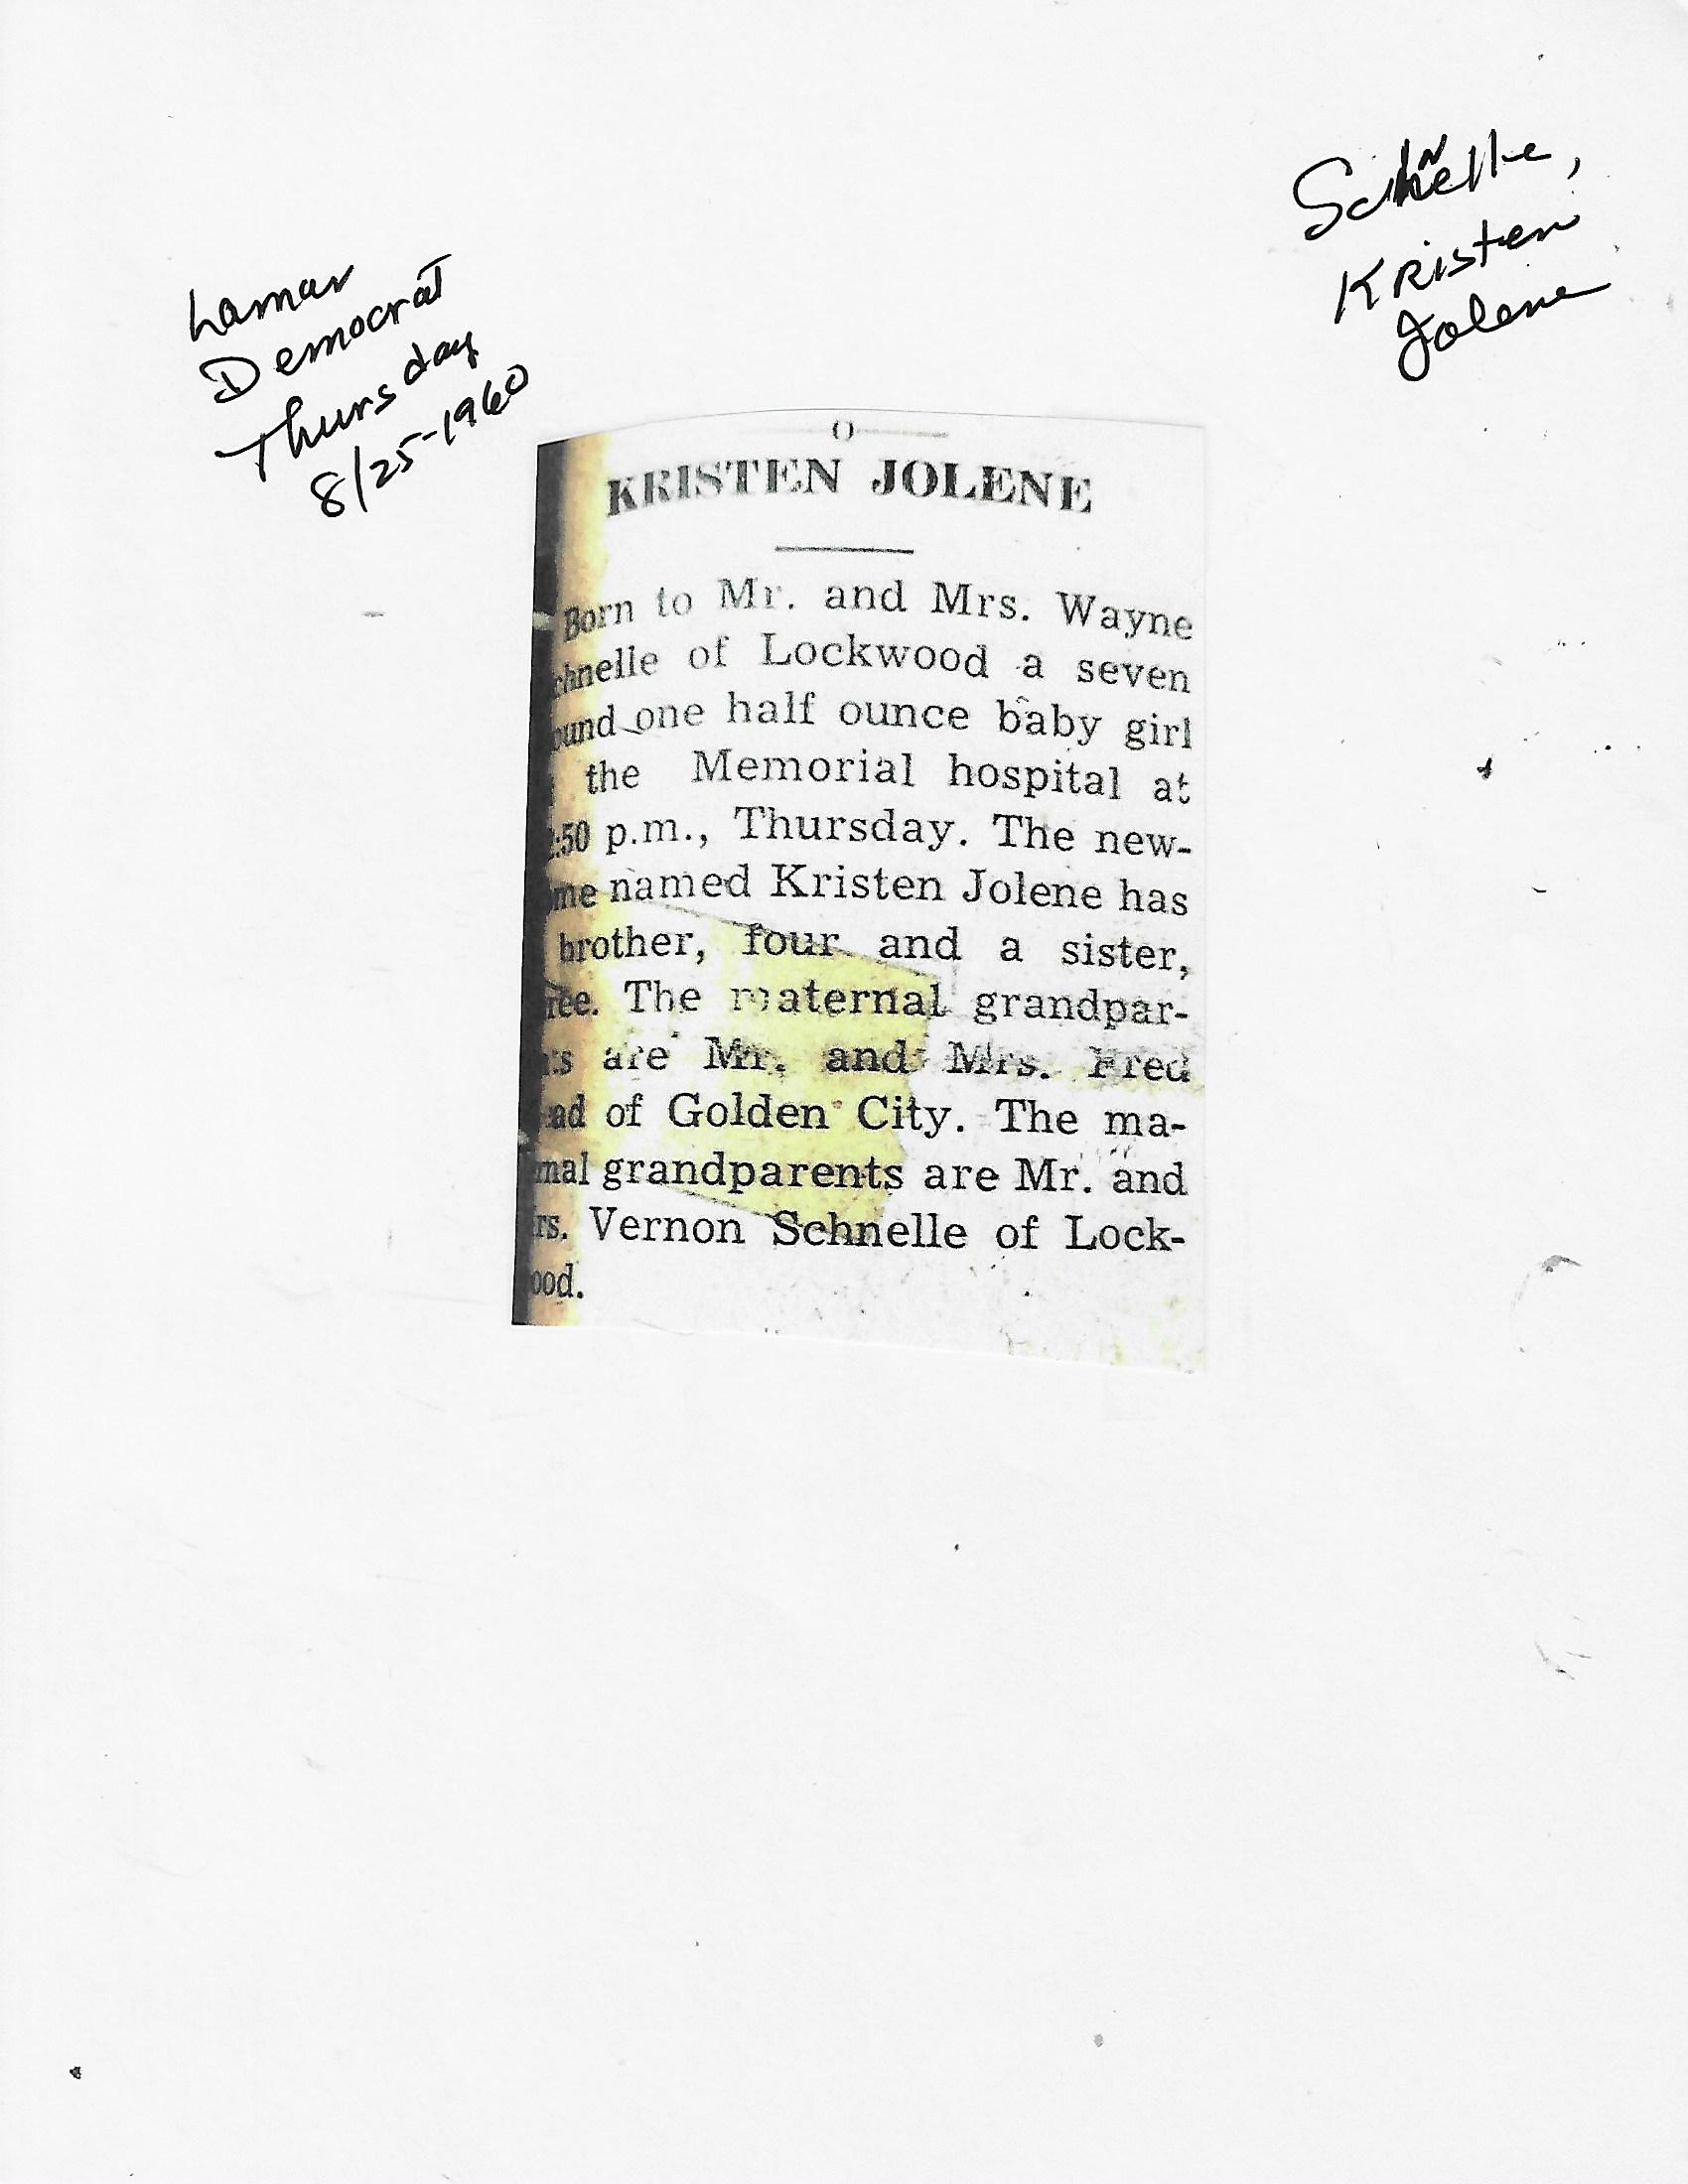 Lamar
Democrat
Thursday
8/25-1960
Schnelle,
Kristen
Jolene
KRISTEN JOLENE
Born to Mr. and Mrs. Wayne
chnelle of Lockwood a seven
ound one half ounce baby girl
the Memorial hospital at
:50 p.m., Thursday. The new-
me named Kristen Jolene has
brother, four and a sister,
ree. The maternal grandpar-
ts are Mr. and Mrs. Fred
ad of Golden City. The ma-
rnal grandparents are Mr. and
rs. Vernon Schnelle of Lock-
ood.